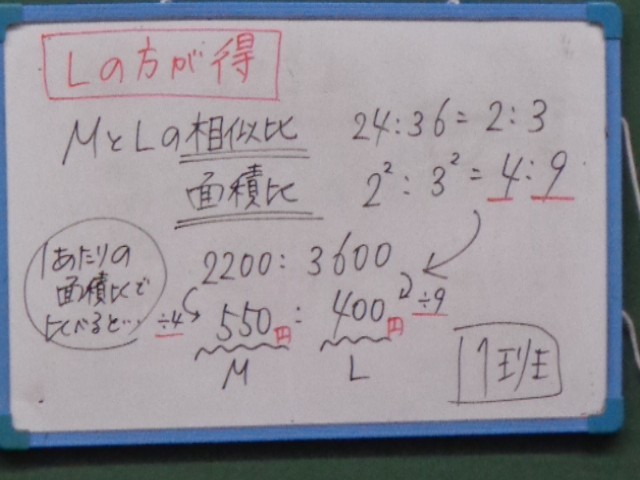 Lの方が得
MとLの相似比 24:36=2:3
面積比 2²:3²=4:9
1あたりの
面積比で
比べると…
2200:3600
÷4 550円:400円 ÷9
M L
1班